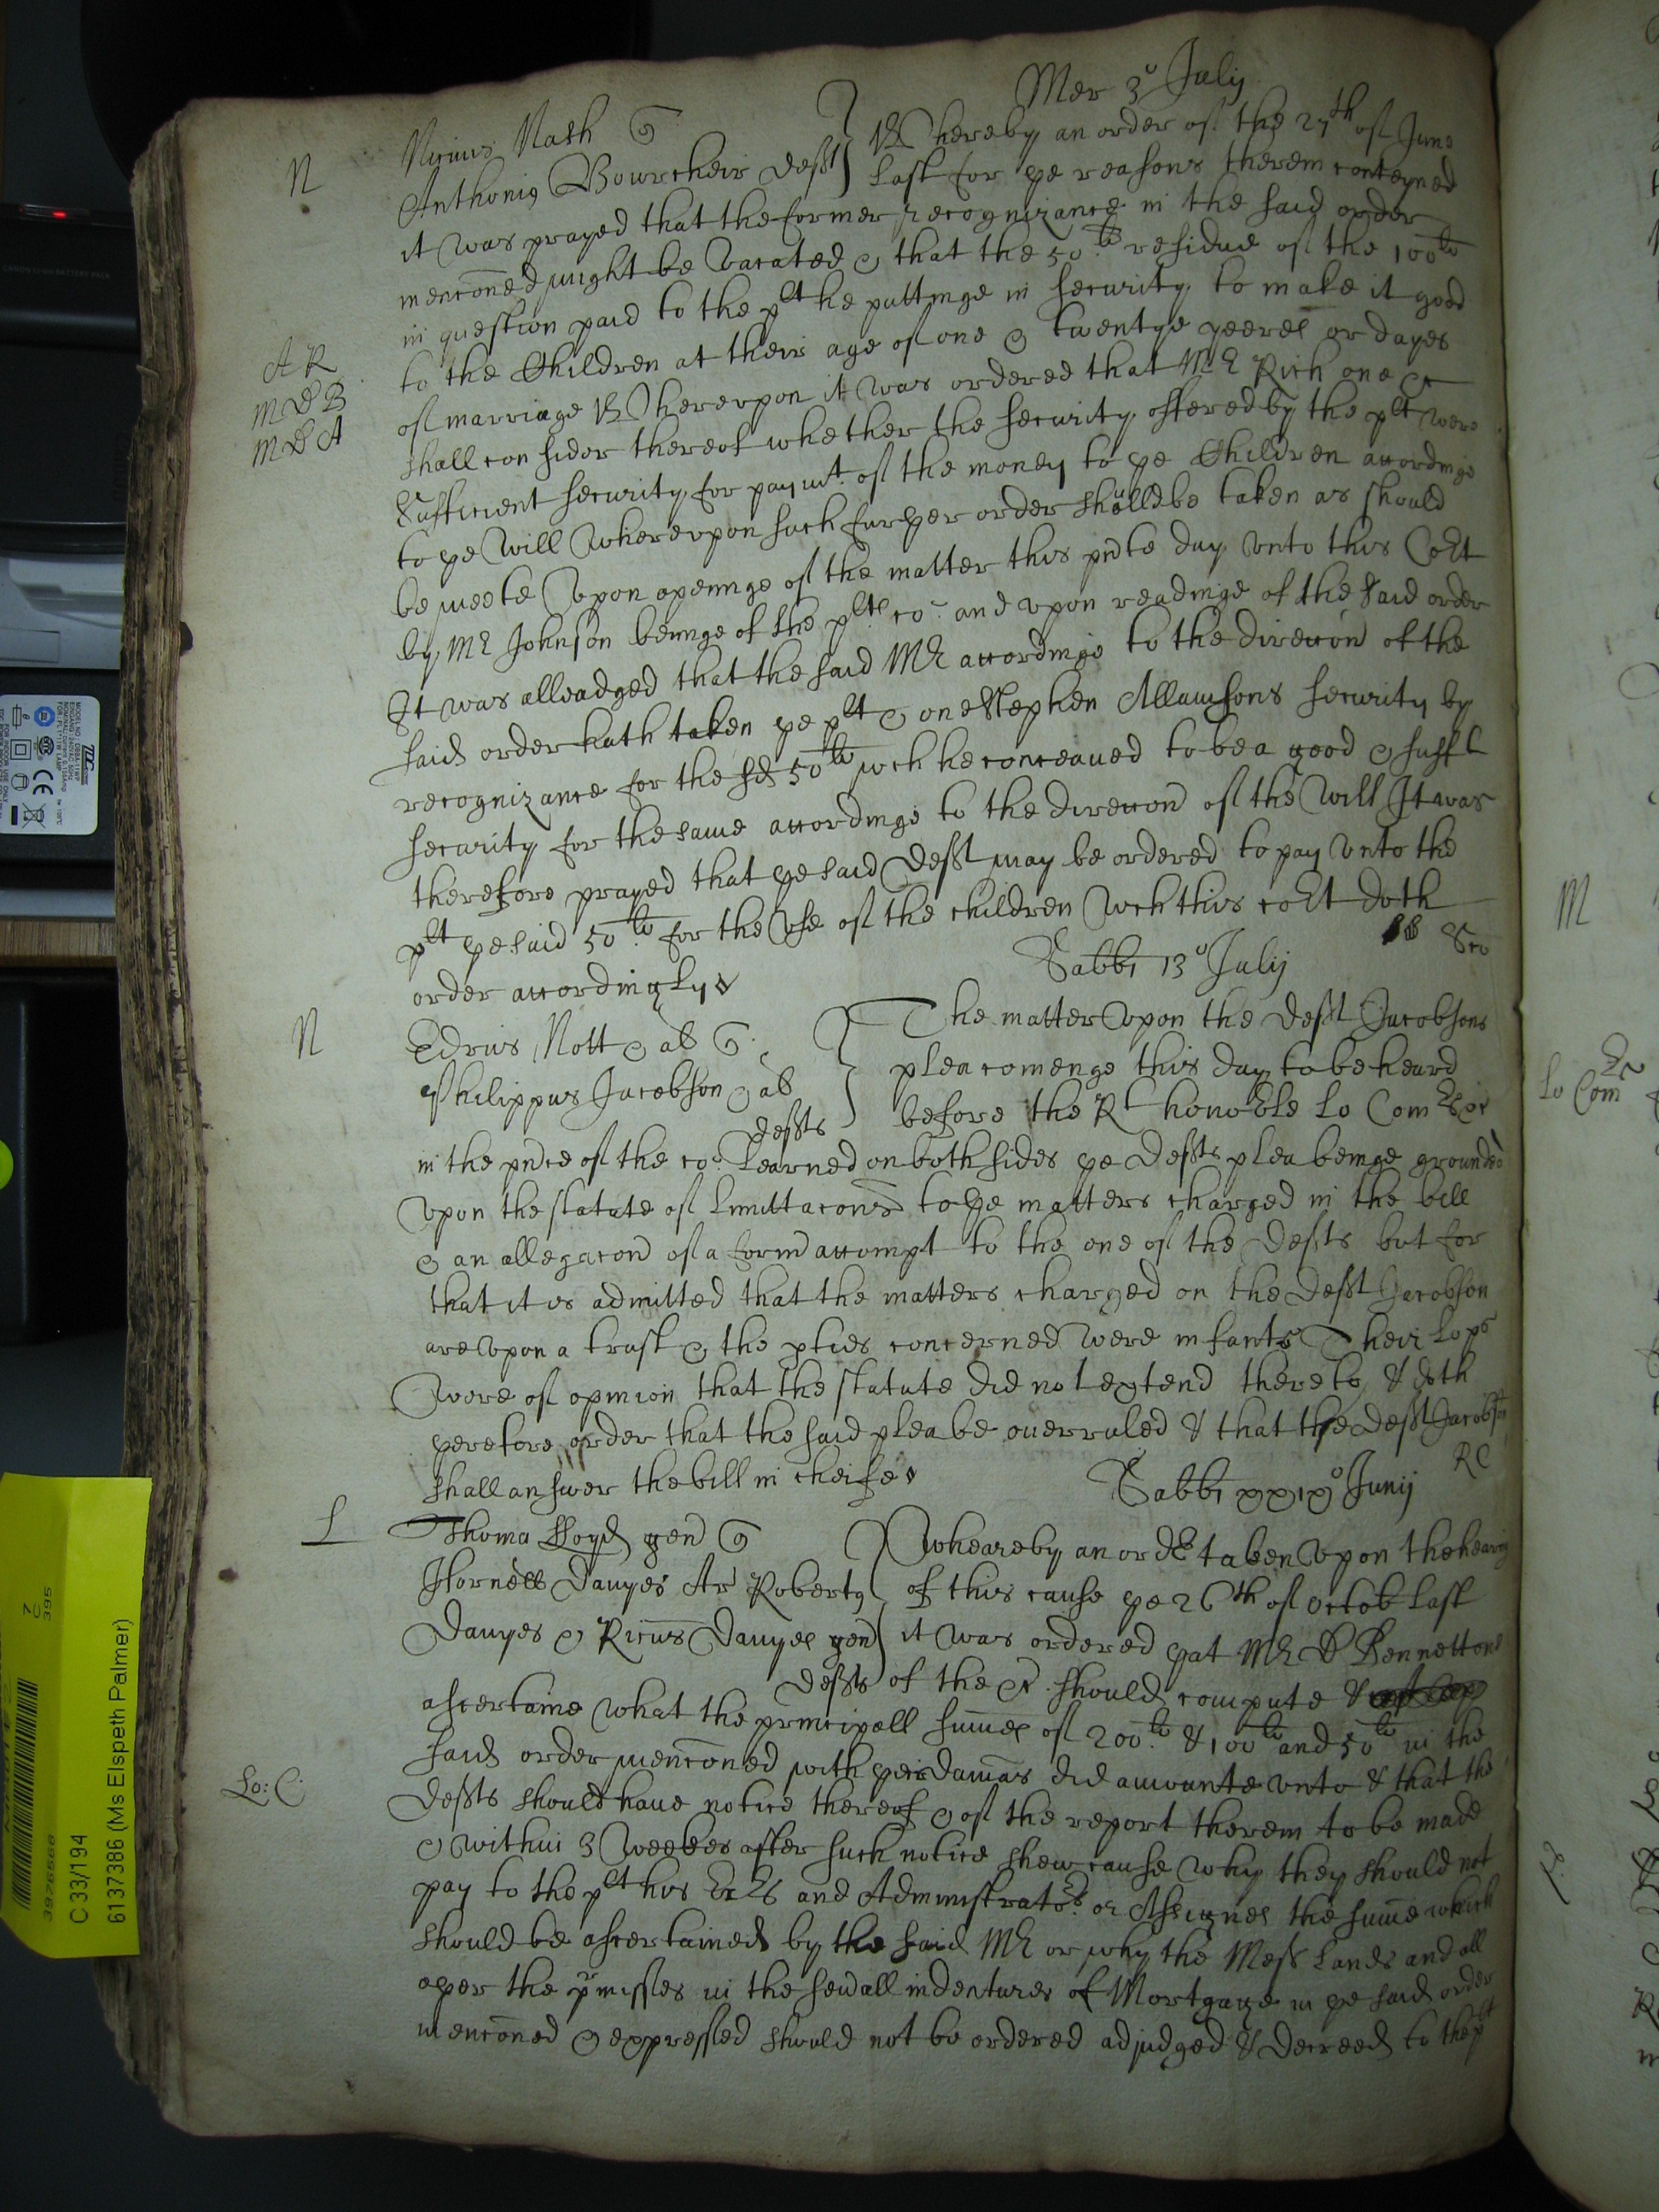 Mer 3o July
N
Nicuus Nash Q
Anthonie Bourcheir defft
Whereby an order of the 27th of June
last for ye reasons therein conteyned
it was prayed that the former recognizance in the said order
menconed might be vacated & that the 50li residue of the 100li
in question paid to the plt he puttinge in security to make it good
to the Children at their age of one & twentye yeeres or dayes
A R
M D B
M D A
of marriage Whereupon it was ordered that Mr Rich one &c
shall consider thereof whether the security offered by the plt were
sufficient security for paymt of the money to ye Children accordinge
to ye will whereupon such further order should be taken as should
be meete Upon openinge of the matter this pnte day unto this Cort
by Mr Johnson beinge of the plts co: and upon readinge of the said order
It was alleadged that the said Mr accordinge to the direccon of the
said order hath taken ye plt & one Stephen Allansons security by
recognizance for the sd 50li wch he conceaved to be a good & sufft
security for the same accordinge to the direccon of the will It was
therefore prayed that ye said defft may be ordered to pay unto the
plt ye said 50li for the use of the children wch this cort doth
order accordingly
Sabbi 13o July
N
Edrus Nott & al Q
Philippus Jacobson & al
deffts
The matter upon the defft Jacobsons
plea comenge this day to be heard
before the Rt honoble Lo Comrs &c
in the pnce of the co: Learned on both sides ye deffts plea beinge grounded
upon the statute of limittacons to ye matters charged in the bill
& an allegacon of a formr accompt to the one of the deffts but for
that it is admitted that the matters charged on the defft Jacobson
are upon a trust & the pties concerned were infants Their Lopps
were of opinion that the statute did not extend thereto & doth
yerefore order that the said plea be overruled & that the defft Jacobson
shall answer the bill in cheife
R C
Sabbi xxixo Junij
L
Thoma Lloyd gen Q
Davyes Ar Robertus
Davyes & Ricus Davyes gen
deffts
wheareby an ordr taken upon the hearing
of this cause ye 26th of Octob last
it was ordered yat Mr Bennett one
of the &c should compute &
ascertaine what the principall summes of 200li & 100li and 50li in the
said order menconed with yeir damas did amounte unto & that the
Lo: C:
deffts should have notice thereof & of the report therein to be made
& within 3 weekes after such notice shew cause why they should not
pay to the plt his Exrs and Administratos or Assignes the summe which
should be ascertained by the said Mr or why the Mess Lands and all
oyer the pmisses in the severall indentures of Mortgage in ye said order
menconed & expressed should not be ordered adjudged & decreed to the plt
M
Lo Com
C 33/194
61373386 (Ms Elspeth Palmer)